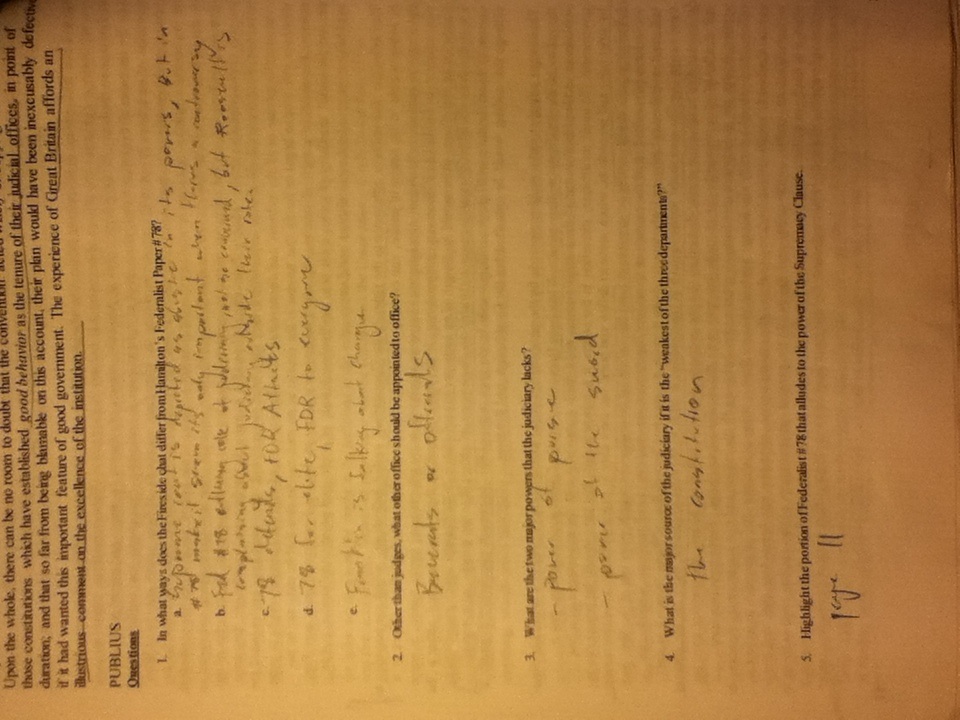 Upon the whole, there can be no room to doubt that the convention acted
those constitutions which have established good behavior as the tenure of their judicial offices, in point of
duration; and that so far from being blamable on this account, their plan would have been inexcusably defective
if it had wanted this important feature of good government. The experience of Great Britain affords an
illustrious comment on the excellence of the institution.
PUBLIUS
Questions
1. In what ways does the Fireside chat differ from Hamilton's Federalist Paper #78?
a. Supreme court is depicted as in its powers, But in
#78 makes it seem its only important when theres a controversy
b. Fed #78 role of judiciary, not so concerned, but Roosevelt is
complaining about judiciary outside their roles
c. 78 defends, FDR Attacks
d. 78 for elite, FDR to everyone
e. is talking about change
2. Other than judges, what other office should be appointed to office?
or officials
3. What are the two major powers that the judiciary lacks?
- power of purse
- power of the sword
4. What is the major source of the judiciary if it is the "weakest of the three departments?"
the constitution
5. Highlight the portion of Federalist #78 that alludes to the power of the Supremacy Clause.
page 11